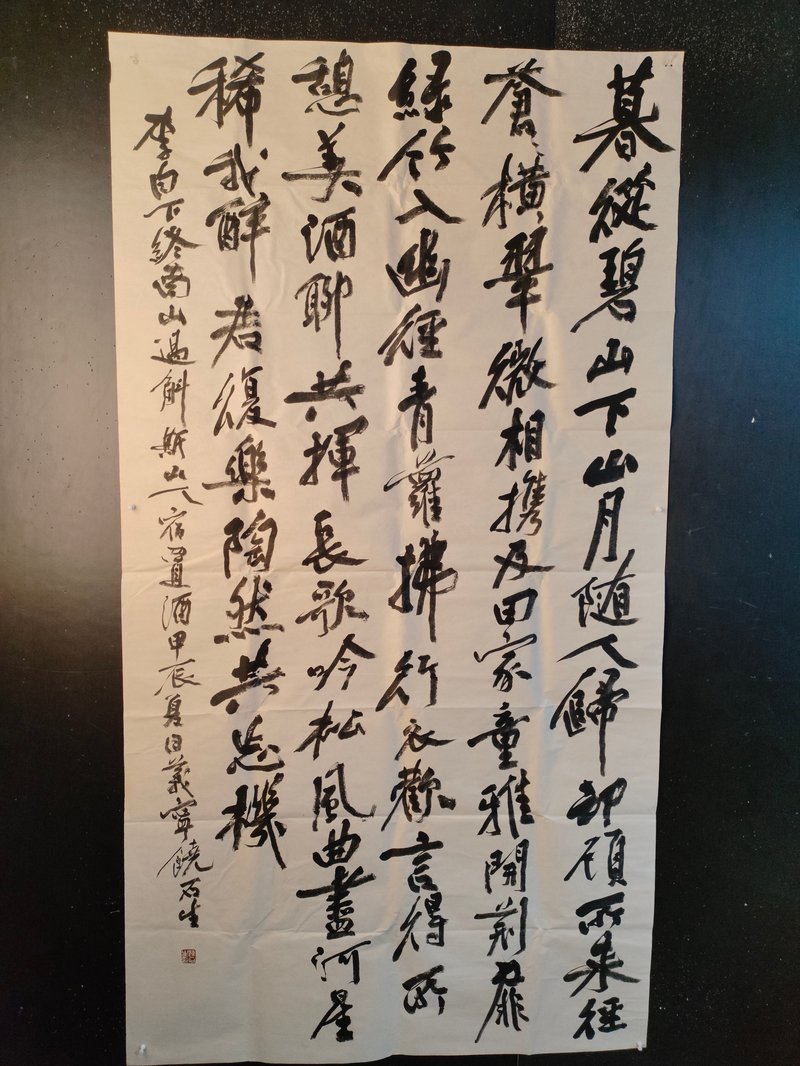 暮從碧山下山月随人歸却顧所来徑
蒼〻橫翠微相携及田家童稚開荆扉
緑竹入幽徑青蘿拂行衣歡言得所
憩美酒聊共揮長歌吟松風曲盡河星
稀我醉君復樂陶然共忘機
李白下終南山過斛斯山人宿置酒甲辰夏日義寧饒石生